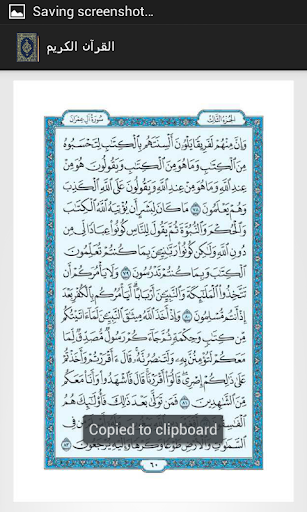 Saving screenshot...
القرآن الكريم
سُورَةُ آلِ عِمْرَان
الجُزْءُ الثَّالِثُ
وَإِنَّ مِنْهُمْ لَفَرِيقًا يَلْوُۥنَ أَلْسِنَتَهُم بِٱلْكِتَٰبِ لِتَحْسَبُوهُ
مِنَ ٱلْكِتَٰبِ وَمَا هُوَ مِنَ ٱلْكِتَٰبِ وَيَقُولُونَ هُوَ
مِنْ عِندِ ٱللَّهِ وَمَا هُوَ مِنْ عِندِ ٱللَّهِ وَيَقُولُونَ عَلَى ٱللَّهِ ٱلْكَذِبَ
وَهُمْ يَعْلَمُونَ ٧٨ مَا كَانَ لِبَشَرٍ أَن يُؤْتِيَهُ ٱللَّهُ ٱلْكِتَٰبَ
وَٱلْحُكْمَ وَٱلنُّبُوَّةَ ثُمَّ يَقُولَ لِلنَّاسِ كُونُوا۟ عِبَادًا لِّى مِن
دُونِ ٱللَّهِ وَلَٰكِن كُونُوا۟ رَبَّٰنِيِّـۧنَ بِمَا كُنتُمْ تُعَلِّمُونَ
ٱلْكِتَٰبَ وَبِمَا كُنتُمْ تَدْرُسُونَ ٧٩ وَلَا يَأْمُرَكُمْ أَن
تَتَّخِذُوا۟ ٱلْمَلَٰٓئِكَةَ وَٱلنَّبِيِّـۧنَ أَرْبَابًا أَيَأْمُرُكُم بِٱلْكُفْرِ بَعْدَ
إِذْ أَنتُم مُّسْلِمُونَ ٨٠ وَإِذْ أَخَذَ ٱللَّهُ مِيثَٰقَ ٱلنَّبِيِّـۧنَ لَمَآ ءَاتَيْتُكُم
مِّن كِتَٰبٍ وَحِكْمَةٍ ثُمَّ جَآءَكُمْ رَسُولٌ مُّصَدِّقٌ لِّمَا
مَعَكُمْ لَتُؤْمِنُنَّ بِهِۦ وَلَتَنصُرُنَّهُۥ قَالَ ءَأَقْرَرْتُمْ وَأَخَذْتُمْ
عَلَىٰ ذَٰلِكُمْ إِصْرِى قَالُوٓا۟ أَقْرَرْنَا قَالَ فَٱشْهَدُوا۟ وَأَنَا۠ مَعَكُم
مِّنَ ٱلشَّٰهِدِينَ ٨١ فَمَن تَوَلَّىٰ بَعْدَ ذَٰلِكَ فَأُو۟لَٰٓئِكَ هُمُ
فِى
ٱلسَّمَٰوَٰتِ وَٱلْأَرْضِ طَوْعًا وَكَرْهًا وَإِلَيْهِ يُرْجَعُونَ ٨٣
Copied to clipboard
٦٠